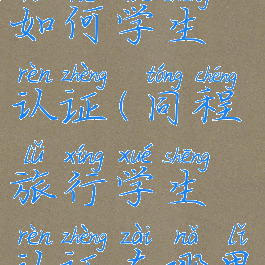 如何学生
rèn zhèng tóng chéng
认证(同程
lǚ xíng xué shēng
旅行学生
rèn zhèng zài nǎ lǐ